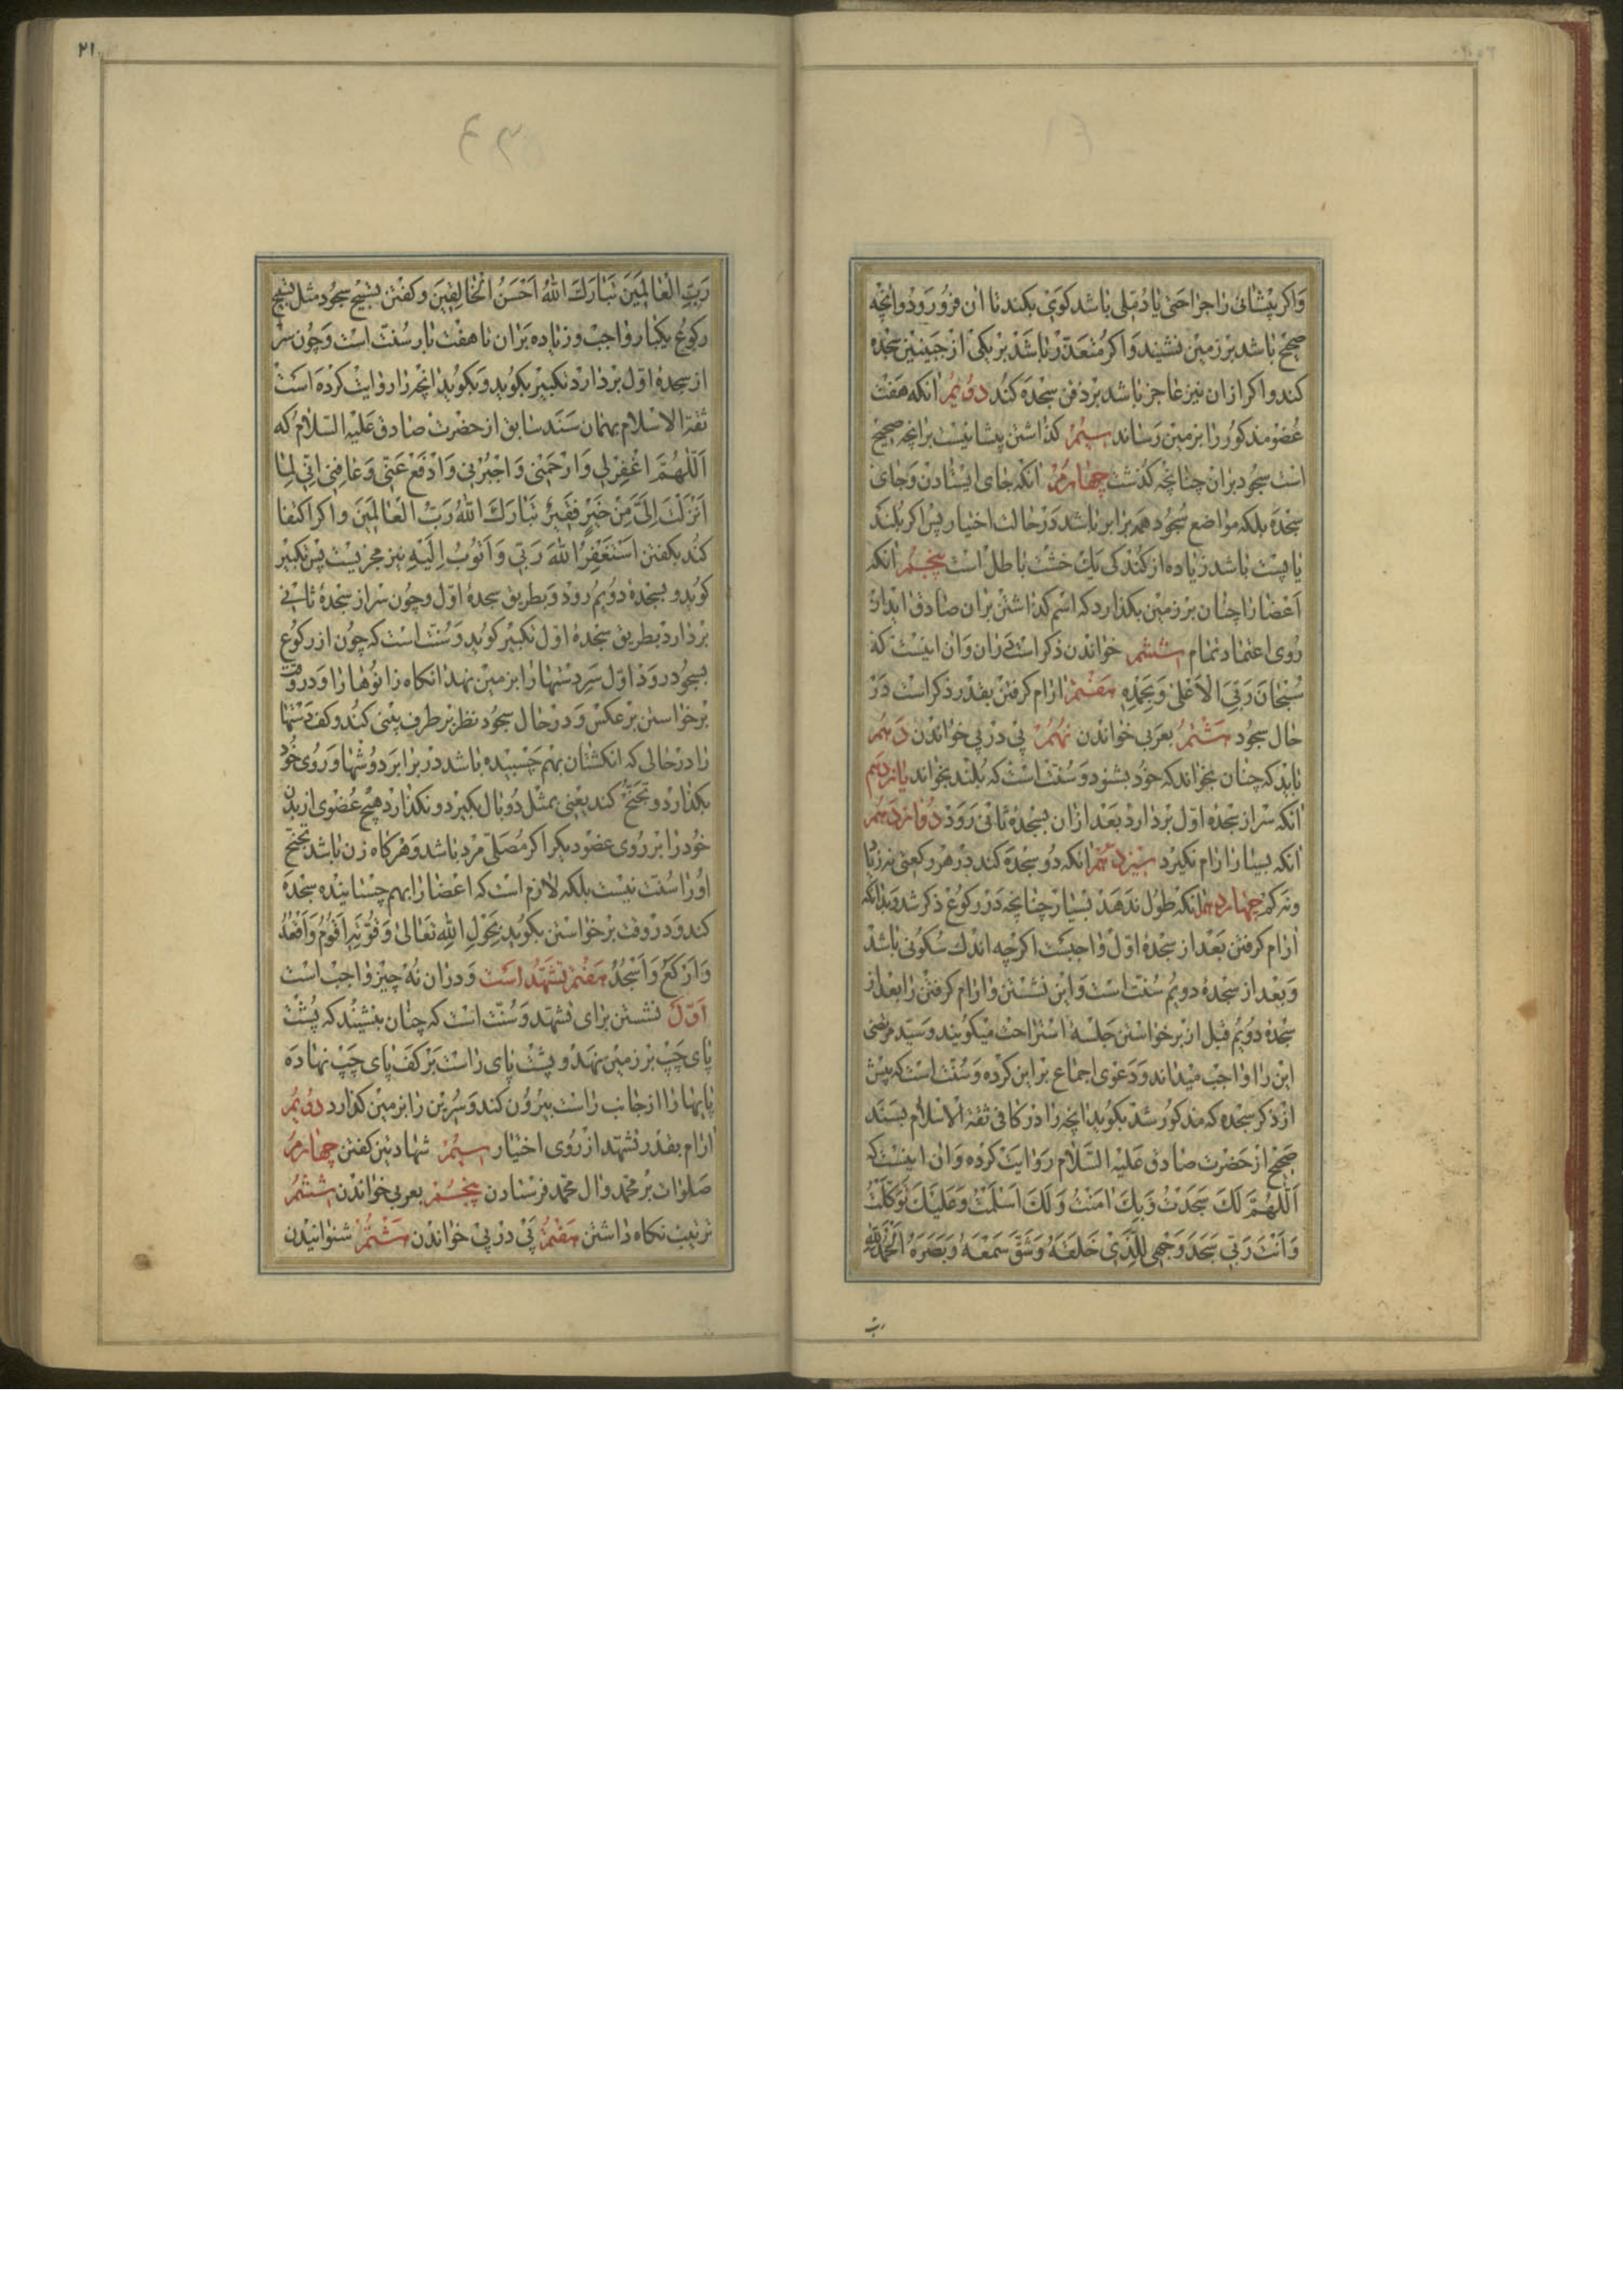 واکر پیشانی را جراحتی یا دملی باشد کوی بکند تا ان فرو رود و انچه
صحیح باشد بر زمین نشیند و اکر متعذر باشد بر یکی از جبینین سجده
کند و اکر از ان نیز عاجز باشد بر ذقن سجده کند دویم انکه هفت
عضو مذکور را بر زمین رساند سیم کذاشتن پیشانیست بر انچه صحیح
است سجود بران چنانچه کذشت چهارم انکه جای ایستادن و جای
سجده بلکه مواضع سجود همه برابر باشد در حالت اختیار پس اکر بلند
یا پست باشد زیاده از کندکی یک خشت باطل است پنجم انکه
اعضا را چنان بر زمین بکذارد که اسم کذاشتن بران صادق اید از
روی اعتماد تمام ششم خواندن ذکر است دران و ان اینست که
سبحان ربی الاعلی وبحمده هفتم ارام کرفتن بقدر ذکر است در
حال سجود هشتم بعربی خواندن نهم پی در پی خواندن دهم
باید که چنان بخواند که خود بشنود و سنت است که بلند بخواند یازدهم
انکه سر از سجده اول بردارد بعد ازان بسجده ثانی رود دوازدهم
انکه بسیار ارام نکیرد سیزدهم انکه دو سجده کند در هر رکعتی نه زیاد
و نه کم چهاردهم انکه طول ندهد بسیار چنانچه در رکوع ذکر شد و بدانکه
ارام کرفتن بعد از سجده اول واجبست اکرچه اندک سکونی باشد
و بعد از سجده دویم سنت است و این نشستن و ارام کرفتن را بعد از
سجده دویم قبل از برخواستن جلسه استراحت میکویند و سید مرتضی
این را واجب میداند و دعوی اجماع براین کرده و سنت است که پیش
از ذکر سجده که مذکور شد بکوید انچه را در کافی ثقة الاسلام بسند
صحیح از حضرت صادق علیه السلام روایت کرده و ان اینست که
اللهم لک سجدت وبک امنت ولک اسلمت وعلیک توکلت
وانت ربی سجد وجهی للذی خلقه وشق سمعه وبصره الحمدلله
رب
۲۱
رب العالمین تبارک الله احسن الخالقین و کفتن تسبیح سجود مثل تسبیح
رکوع یکبار واجب و زیاده بران تا هفت بار سنت است و چون سر
از سجده اول بردارد تکبیر بکوید و بکوید انچه را روایت کرده است
ثقة الاسلام بهمان سند سابق از حضرت صادق علیه السلام که
اللهم اغفر لی وارحمنی واجبرنی وادفع عنی وعافنی انی لما
انزلت الی من خیر فقیر تبارک الله رب العالمین و اکر اکتفا
کند بکفتن استغفر الله ربی واتوب الیه نیز مجزیست پس تکبیر
کوید و بسجده دویم رود و بطریق سجده اول و چون سر از سجده ثانی
بردارد بطریق سجده اول تکبیر کوید و سنت است که چون از رکوع
بسجود رود اول سر دستها را بر زمین نهد انکاه زانوها را و در وقت
برخواستن برعکس و در حال سجود نظر بر طرف بینی کند و کف دستها
را در حالی که انکشتان بهم چسبیده باشد در برابر دوشها و روی خود
بکذارد و تجنح کند یعنی بمثل دو بال بکیرد و نکذارد هیچ عضوی از بدن
خود را بر روی عضو دیکر اکر مصلی مرد باشد و هرکاه زن باشد تجنح
او را سنت نیست بلکه لازم است که اعضا را بهم چسبانیده سجده
کند و در وقت برخواستن بکوید بحول الله تعالی وقوته اقوم واقعد
وارکع واسجد هفتم تشهد است و دران نه چیز واجب است
اول نشستن برای تشهد و سنت است که چنان بنشیند که پشت
پای چپ بر زمین نهد و پشت پای راست بر کف پای چپ نهاده
پایها را از جانب راست بیرون کند و سرین را بر زمین کذارد دویم
ارام بقدر تشهد از روی اختیار سیم شهادتین کفتن چهارم
صلوات بر محمد وال محمد فرستادن پنجم بعربی خواندن ششم
ترتیب نکاه داشتن هفتم پی در پی خواندن هشتم شنوانیدن